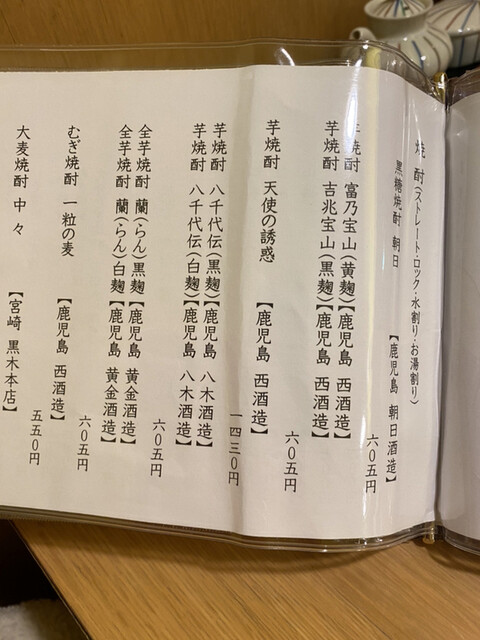 焼 酎(ストレート・ロック・水割り・お湯割り)
黒糖焼酎 朝日 【鹿児島 朝日酒造】
六〇五円
芋焼酎 富乃宝山(黄麹)【鹿児島 西酒造】
芋焼酎 吉兆宝山(黒麹)【鹿児島 西酒造】
六〇五円
芋焼酎 天使の誘惑 【鹿児島 西酒造】
一四三〇円
芋焼酎 八千代伝(黒麹)【鹿児島 八木酒造】
芋焼酎 八千代伝(白麹)【鹿児島 八木酒造】
六〇五円
全芋焼酎 蘭(らん)黒麹【鹿児島 黄金酒造】
全芋焼酎 蘭(らん)白麹【鹿児島 黄金酒造】
六〇五円
むぎ焼酎 一粒の麦 【鹿児島 西酒造】
五五〇円
大麦焼酎 中々 【宮崎 黒木本店】